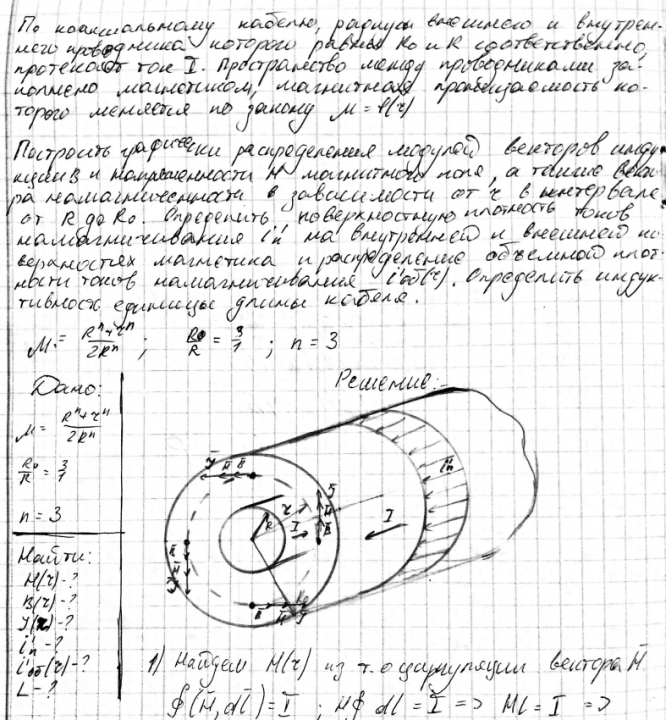 По коаксиальному кабелю, радиусы внешнего и внутрен-
него проводника которого равны R₀ и R соответственно,
протекает ток I. Пространство между проводниками за-
полнено магнетиком, магнитная проницаемость ко-
торого меняется по закону μ = f(r)
Построить графически распределения модулей векторов инду-
кции B и напряженности H магнитного поля, а также векто-
ра намагниченности в зависимости от r в интервале
от R до R₀. Определить поверхностную плотность токов
намагничивания i'п на внутренней и внешней по-
верхностях магнетика и распределение объемной плот-
ности токов намагничивания i'об(r). Определить индук-
тивность единицы длины кабеля.
μ = (Rⁿ+rⁿ)/(2Rⁿ) ; R₀/R = 3/1 ; n = 3
Дано:
μ = (Rⁿ+rⁿ)/(2Rⁿ)
R₀/R = 3/1
n = 3
Найти:
H(r) - ?
B(r) - ?
J(r) - ?
i'п - ?
i'об(r) - ?
L - ?
Решение:
J H B
r
R
I
J
H
B
I
i'п
B
H
J
B H J
R₀
1) Найдем H(r) из т. о циркуляции вектора H
∮(H, dl) = I ; H∮ dl = I => Hl = I =>